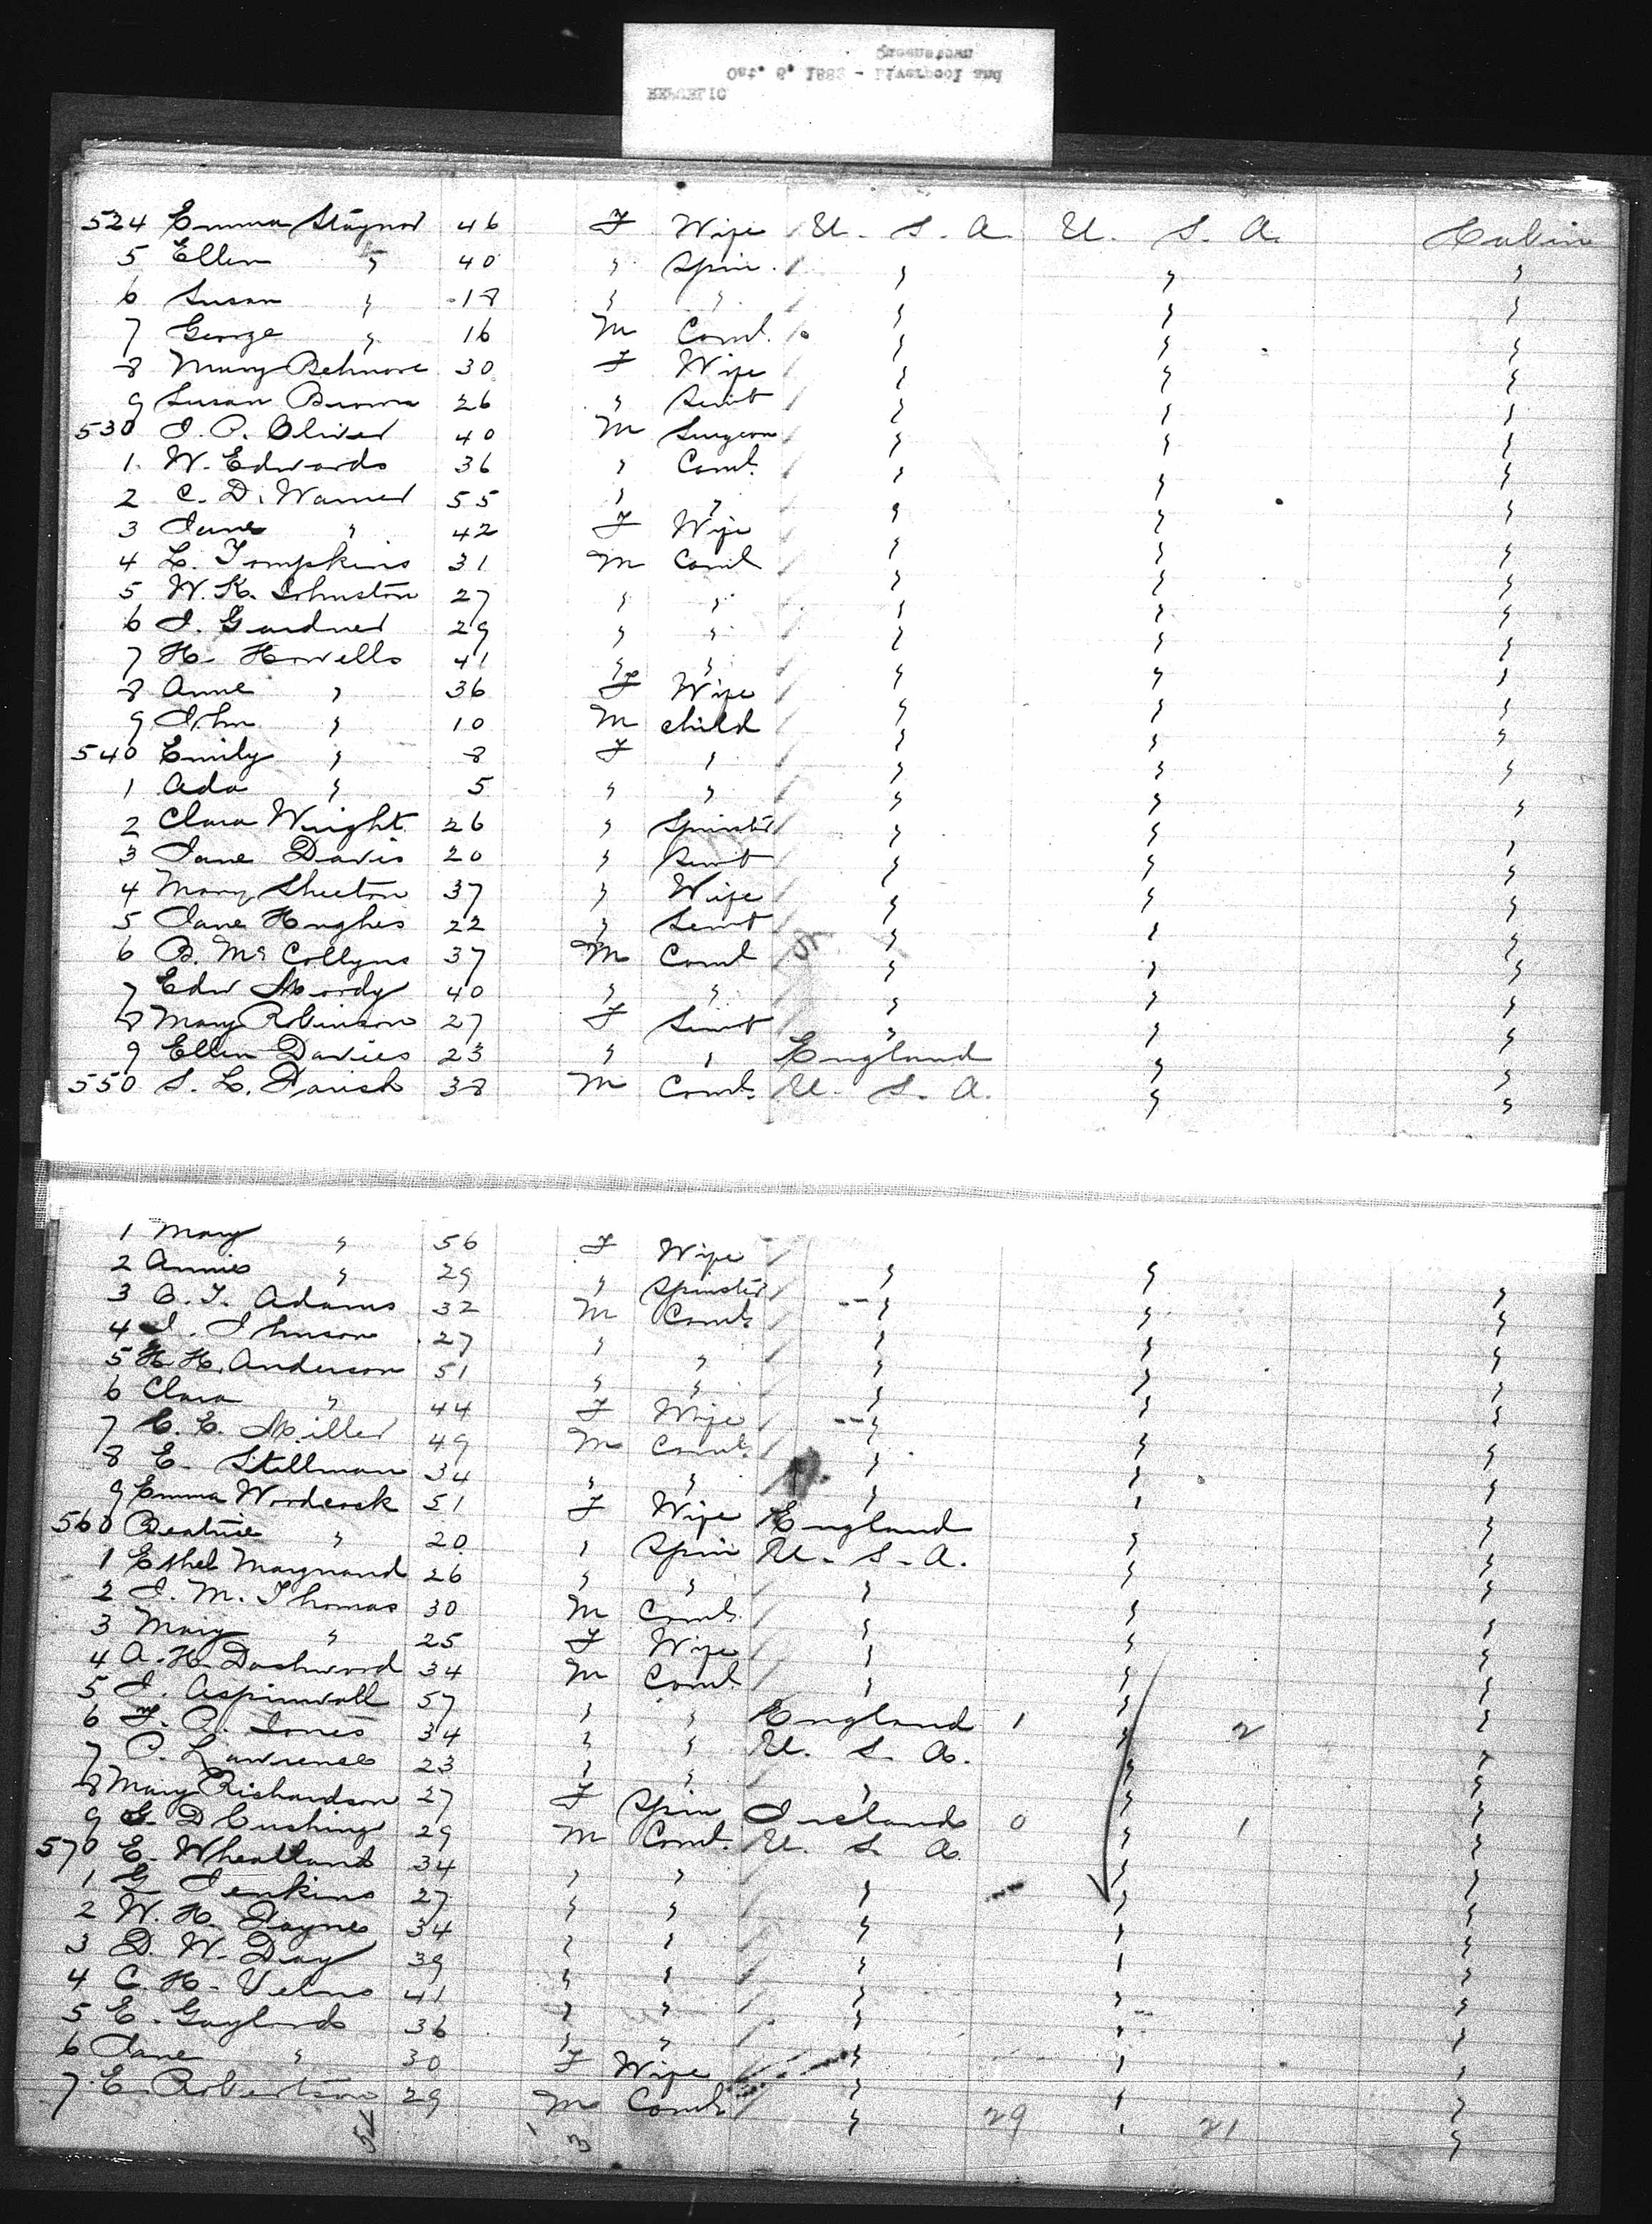 REPUBLIC
Oct. 8, 1883 - Liverpool and
Queenstown
524 Emma Staynor 46 F Wife U. S. A. U. S. A. Cabin
5 Ellen " 40 " Spin. " " "
6 Susan " 18 " " " " "
7 George " 16 M Coml. " " "
8 Mary Belmore 30 F Wife " " "
9 Susan Brown 26 " Servt " " "
530 J. P. Oliver 40 M Surgeon " " "
1 W. Edwards 36 " Coml. " " "
2 C. D. Warner 55 " " " " "
3 Jane " 42 F Wife " " "
4 L. Tompkins 31 M Coml " " "
5 W. K. Johnston 27 " " " " "
6 J. Gardner 29 " " " " "
7 H. Howells 41 " " " " "
8 Anne " 36 F Wife " " "
9 John " 10 M child " " "
540 Emily " 8 F " " " "
1 Ada " 5 " " " " "
2 Clara Wright 26 " Spinster " " "
3 Jane Davis 20 " Servt " " "
4 Mary Sheeton 37 " Wife " " "
5 Jane Hughes 22 " Servt " " "
6 B. Mc Collyns 37 M Coml " " "
7 Edw Moordy 40 " " " " "
8 Mary Robinson 27 F Servt " " "
9 Ellen Davies 23 " " England " "
550 S. L. Parish 38 M Coml. U. S. A. " "
1 Mary " 56 F Wife " " "
2 Annie " 29 " Spinster " " "
3 C. T. Adams 32 M Coml. " " "
4 J. Johnson 27 " " " " "
5 H. H. Anderson 51 " " " " "
6 Clara " 44 F Wife " " "
7 C. E. Miller 49 M Coml. " " "
8 E. Stillman 34 " " " " "
9 Emma Woodcock 51 F Wife England " "
560 Beatrice " 20 " Spin U. S. A. " "
1 Ethel Maynard 26 " " " " "
2 J. M. Thomas 30 M Coml. " " "
3 Mary " 25 F Wife " " "
4 A. H. Dashwood 34 M Coml. " " "
5 J. Aspinwall 57 " " England 1 " 2 "
6 F. A. Jones 34 " " U. S. A. " "
7 C. Lawrence 23 " " " " "
8 Mary Richardson 27 F Spin Ireland 0 " 1 "
9 G. D Cushing 29 M Coml. U. S. A. " "
570 E. Wheatland 34 " " " " "
1 G. Jenkins 27 " " " " "
2 W. H. Jaynes 34 " " " " "
3 D. W. Day 39 " " " " "
4 C. H. Velns 41 " " " " "
5 E. Gaylord 36 " " " " "
6 Jane " 30 F Wife " " "
7 E. Robertson 29 M Coml. " " "
29 21
54 3